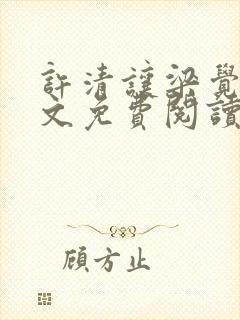 許清讓梁覺
文免費閱讀
顾方止